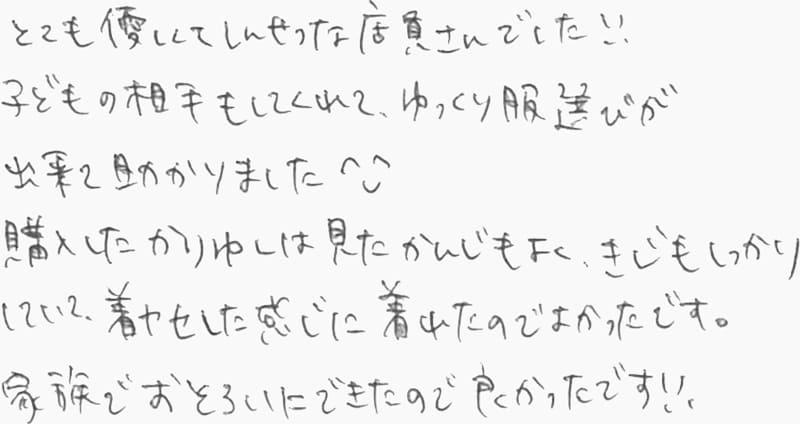 とても優しくてしんせつな店員さんでした!!
子どもの相手もしてくれて、ゆっくり服選びが
出来て助かりました^^
購入したかりゆしは見たかんじもよく、きじもしっかり
していて、着ヤセした感じに着れたのでよかったです。
家族でおそろいにできたので良かったです!!